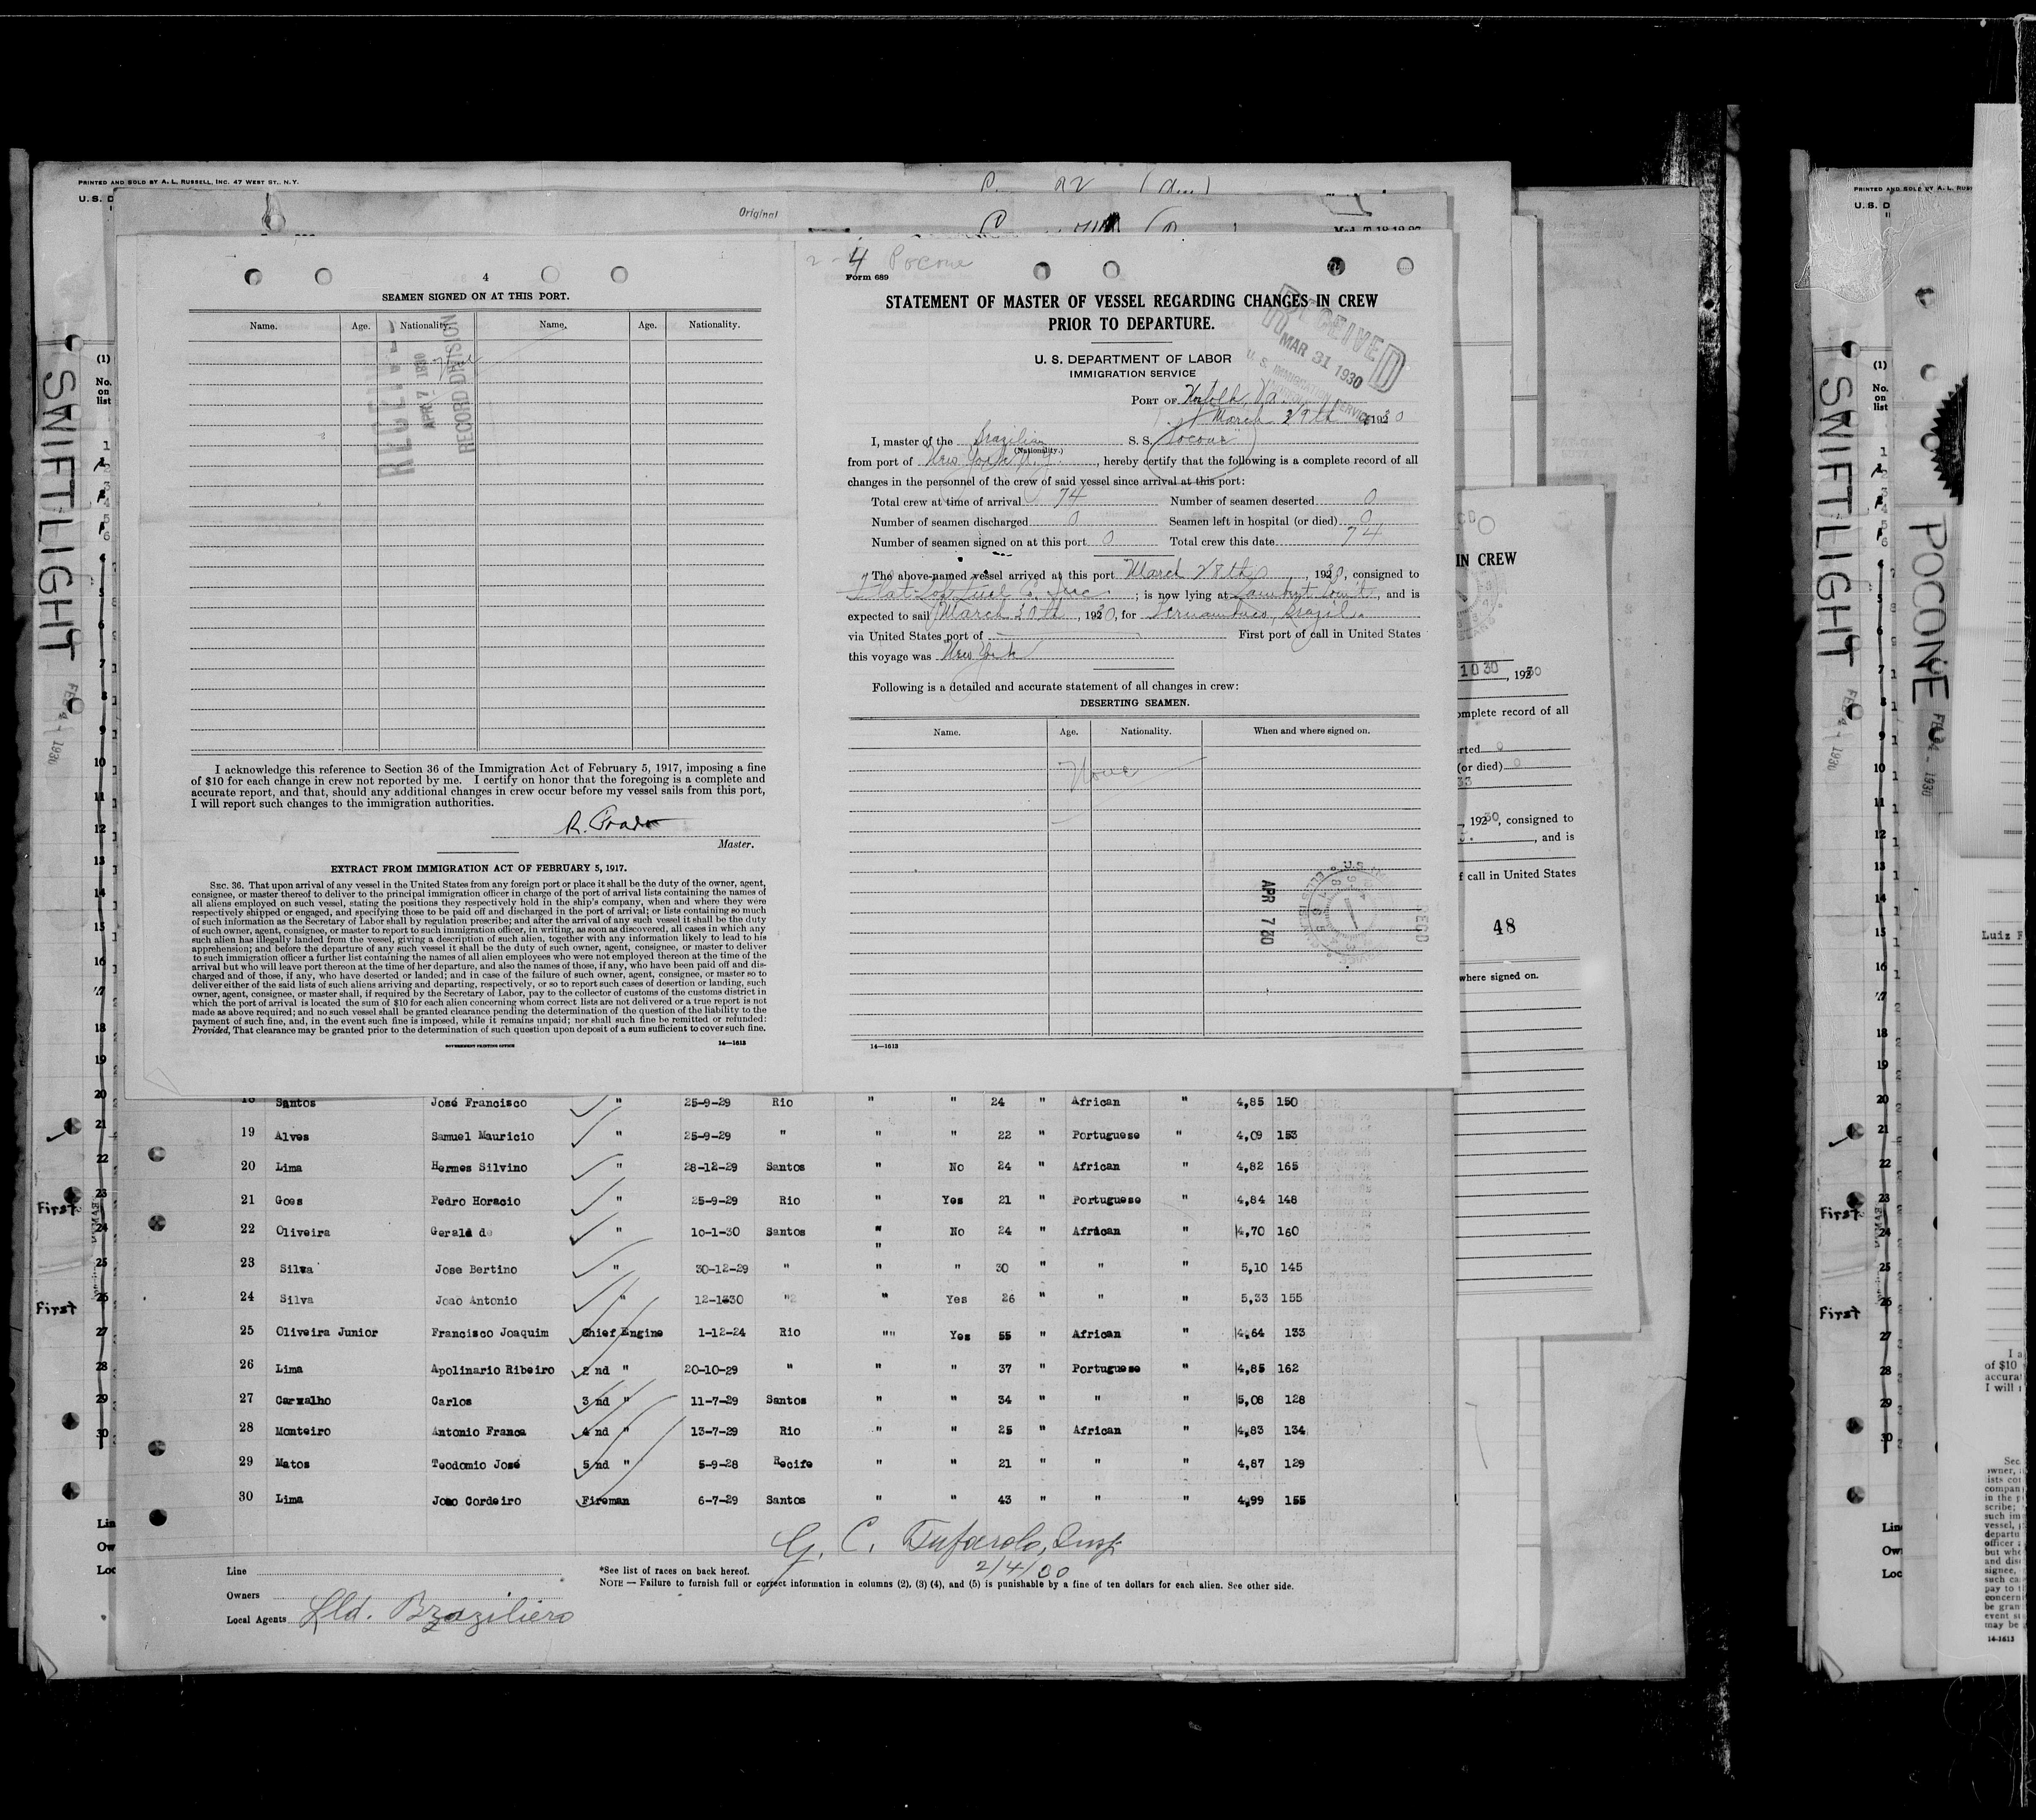 PRINTED AND SOLD BY A. L. RUSSELL, INC. 47 WEST ST., N.Y.
U. S. D
Original
SWIFTLIGHT
FEB 4 - 1930
(1)
No. on list
First
First
4
SEAMEN SIGNED ON AT THIS PORT.
Name. Age. Nationality. Name. Age. Nationality.
APR 7 1930
RECORD DIVISION
I acknowledge this reference to Section 36 of the Immigration Act of February 5, 1917, imposing a fine
of $10 for each change in crew not reported by me. I certify on honor that the foregoing is a complete and
accurate report, and that, should any additional changes in crew occur before my vessel sails from this port,
I will report such changes to the immigration authorities.
Master.
EXTRACT FROM IMMIGRATION ACT OF FEBRUARY 5, 1917.
SEC. 36. That upon arrival of any vessel in the United States from any foreign port or place it shall be the duty of the owner, agent,
consignee, or master thereof to deliver to the principal immigration officer in charge of the port of arrival lists containing the names of
all aliens employed on such vessel, stating the positions they respectively hold in the ship's company, when and where they were
respectively shipped or engaged, and specifying those to be paid off and discharged in the port of arrival; or lists containing so much
of such information as the Secretary of Labor shall by regulation prescribe; and after the arrival of any such vessel it shall be the duty
of such owner, agent, consignee, or master to report to such immigration officer, in writing, as soon as discovered, all cases in which any
such alien has illegally landed from the vessel, giving a description of such alien, together with any information likely to lead to his
apprehension; and before the departure of any such vessel it shall be the duty of such owner, agent, consignee, or master to deliver
to such immigration officer a further list containing the names of all alien employees who were not employed thereon at the time of the
arrival but who will leave port thereon at the time of her departure, and also the names of those, if any, who have been paid off and dis-
charged and of those, if any, who have deserted or landed; and in case of the failure of such owner, agent, consignee, or master so to
deliver either of the said lists of such aliens arriving and departing, respectively, or so to report such cases of desertion or landing, such
owner, agent, consignee, or master shall, if required by the Secretary of Labor, pay to the collector of customs of the customs district in
which the port of arrival is located the sum of $10 for each alien concerning whom correct lists are not delivered or a true report is not
made as above required; and no such vessel shall be granted clearance pending the determination of the question of the liability to the
payment of such fine, and, in the event such fine is imposed, while it remains unpaid; nor shall such fine be remitted or refunded:
Provided, That clearance may be granted prior to the determination of such question upon deposit of a sum sufficient to cover such fine.
GOVERNMENT PRINTING OFFICE 14—1613
4 Pocone
Form 689
STATEMENT OF MASTER OF VESSEL REGARDING CHANGES IN CREW
PRIOR TO DEPARTURE.
RECEIVED
MAR 31 1930
U. S. DEPARTMENT OF LABOR
IMMIGRATION SERVICE
PORT OF Norfolk, Va.
March 29th 1930
I, master of the Brazilian S. S. Pocone
(Nationality.)
from port of New York N.Y., hereby certify that the following is a complete record of all
changes in the personnel of the crew of said vessel since arrival at this port:
Total crew at time of arrival 74 Number of seamen deserted 0
Number of seamen discharged 0 Seamen left in hospital (or died) 0
Number of seamen signed on at this port 0 Total crew this date 74
The above-named vessel arrived at this port March 28th, 1930, consigned to
Flat Top Fuel Co. Inc.; is now lying at Lambert Point, and is
expected to sail March 30th, 1930, for Pernambuco, Brazil.
via United States port of First port of call in United States
this voyage was New York
Following is a detailed and accurate statement of all changes in crew:
DESERTING SEAMEN.
Name. Age. Nationality. When and where signed on.
None
APR 7 30
14—1613
IN CREW
1030, 1930
omplete record of all
rted 0
(or died) 0
33
, 1930, consigned to
, and is
f call in United States
48
where signed on.
18 Santos José Francisco " 25-9-29 Rio " " 24 " African " 4,85 150
19 Alves Samuel Mauricio " 25-9-29 " " " 22 " Portuguese " 4,09 153
20 Lima Hermes Silvino " 28-12-29 Santos " No 24 " African " 4,82 165
21 Goes Pedro Horacio " 25-9-29 Rio " Yes 21 " Portuguese " 4,84 148
22 Oliveira Gerald de " 10-1-30 Santos " No 24 " African " 4,70 160
23 Silva Jose Bertino " 30-12-29 " " " 30 " " " 5,10 145
24 Silva Joao Antonio " 12-1330 " " Yes 26 " " " 5,33 155
25 Oliveira Junior Francisco Joaquim Chief Engine 1-12-24 Rio "" Yes 55 " African " 4,64 133
26 Lima Apolinario Ribeiro 2 nd " 20-10-29 " " " 37 " Portuguese " 4,85 162
27 Carvalho Carlos 3 nd " 11-7-29 Santos " " 34 " " " 5,08 128
28 Monteiro Antonio Franca 4 nd " 13-7-29 Rio " " 25 " African " 4,83 134
29 Matos Teodomio José 5 nd " 5-9-28 Recife " " 21 " " " 4,87 129
30 Lima Joao Cordeiro Fireman 6-7-29 Santos " " 43 " " " 4,99 155
Line
Owners
Local Agents Lld. Braziliero
*See list of races on back hereof.
NOTE — Failure to furnish full or correct information in columns (2), (3) (4), and (5) is punishable by a fine of ten dollars for each alien. See other side.
PRINTED AND SOLD BY A. L. RUS
U.S. D
SWIFTLIGHT
FEB 4 - 1930
POCONE
FEB 4 - 1930
(1)
No. on list
First
First
Luiz F
of $10
accura
I will
14-1613